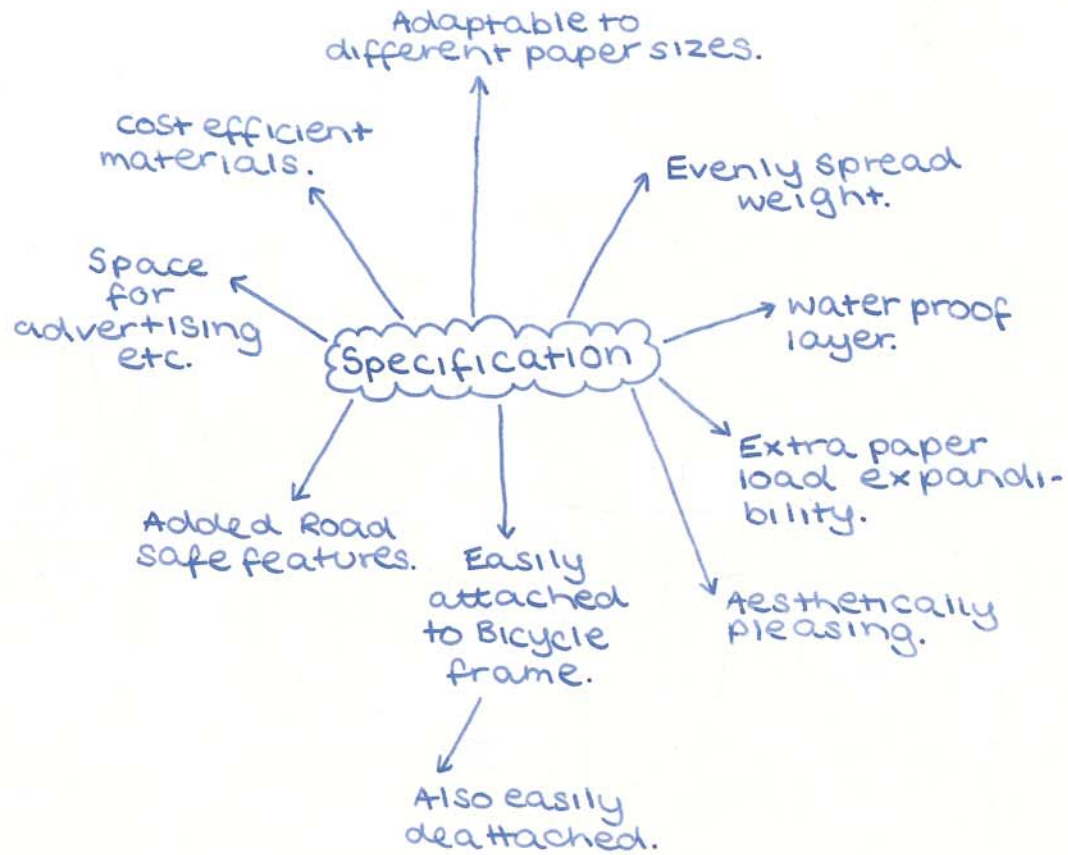 Adaptable to
different paper sizes.
cost efficient
materials.
Evenly spread
weight.
Space
for
advertising
etc.
water proof
layer.
Specification
Extra paper
load expandi-
bility.
Added Road
safe features.
Easily
attached
to Bicycle
frame.
Aesthetically
pleasing.
Also easily
deattached.